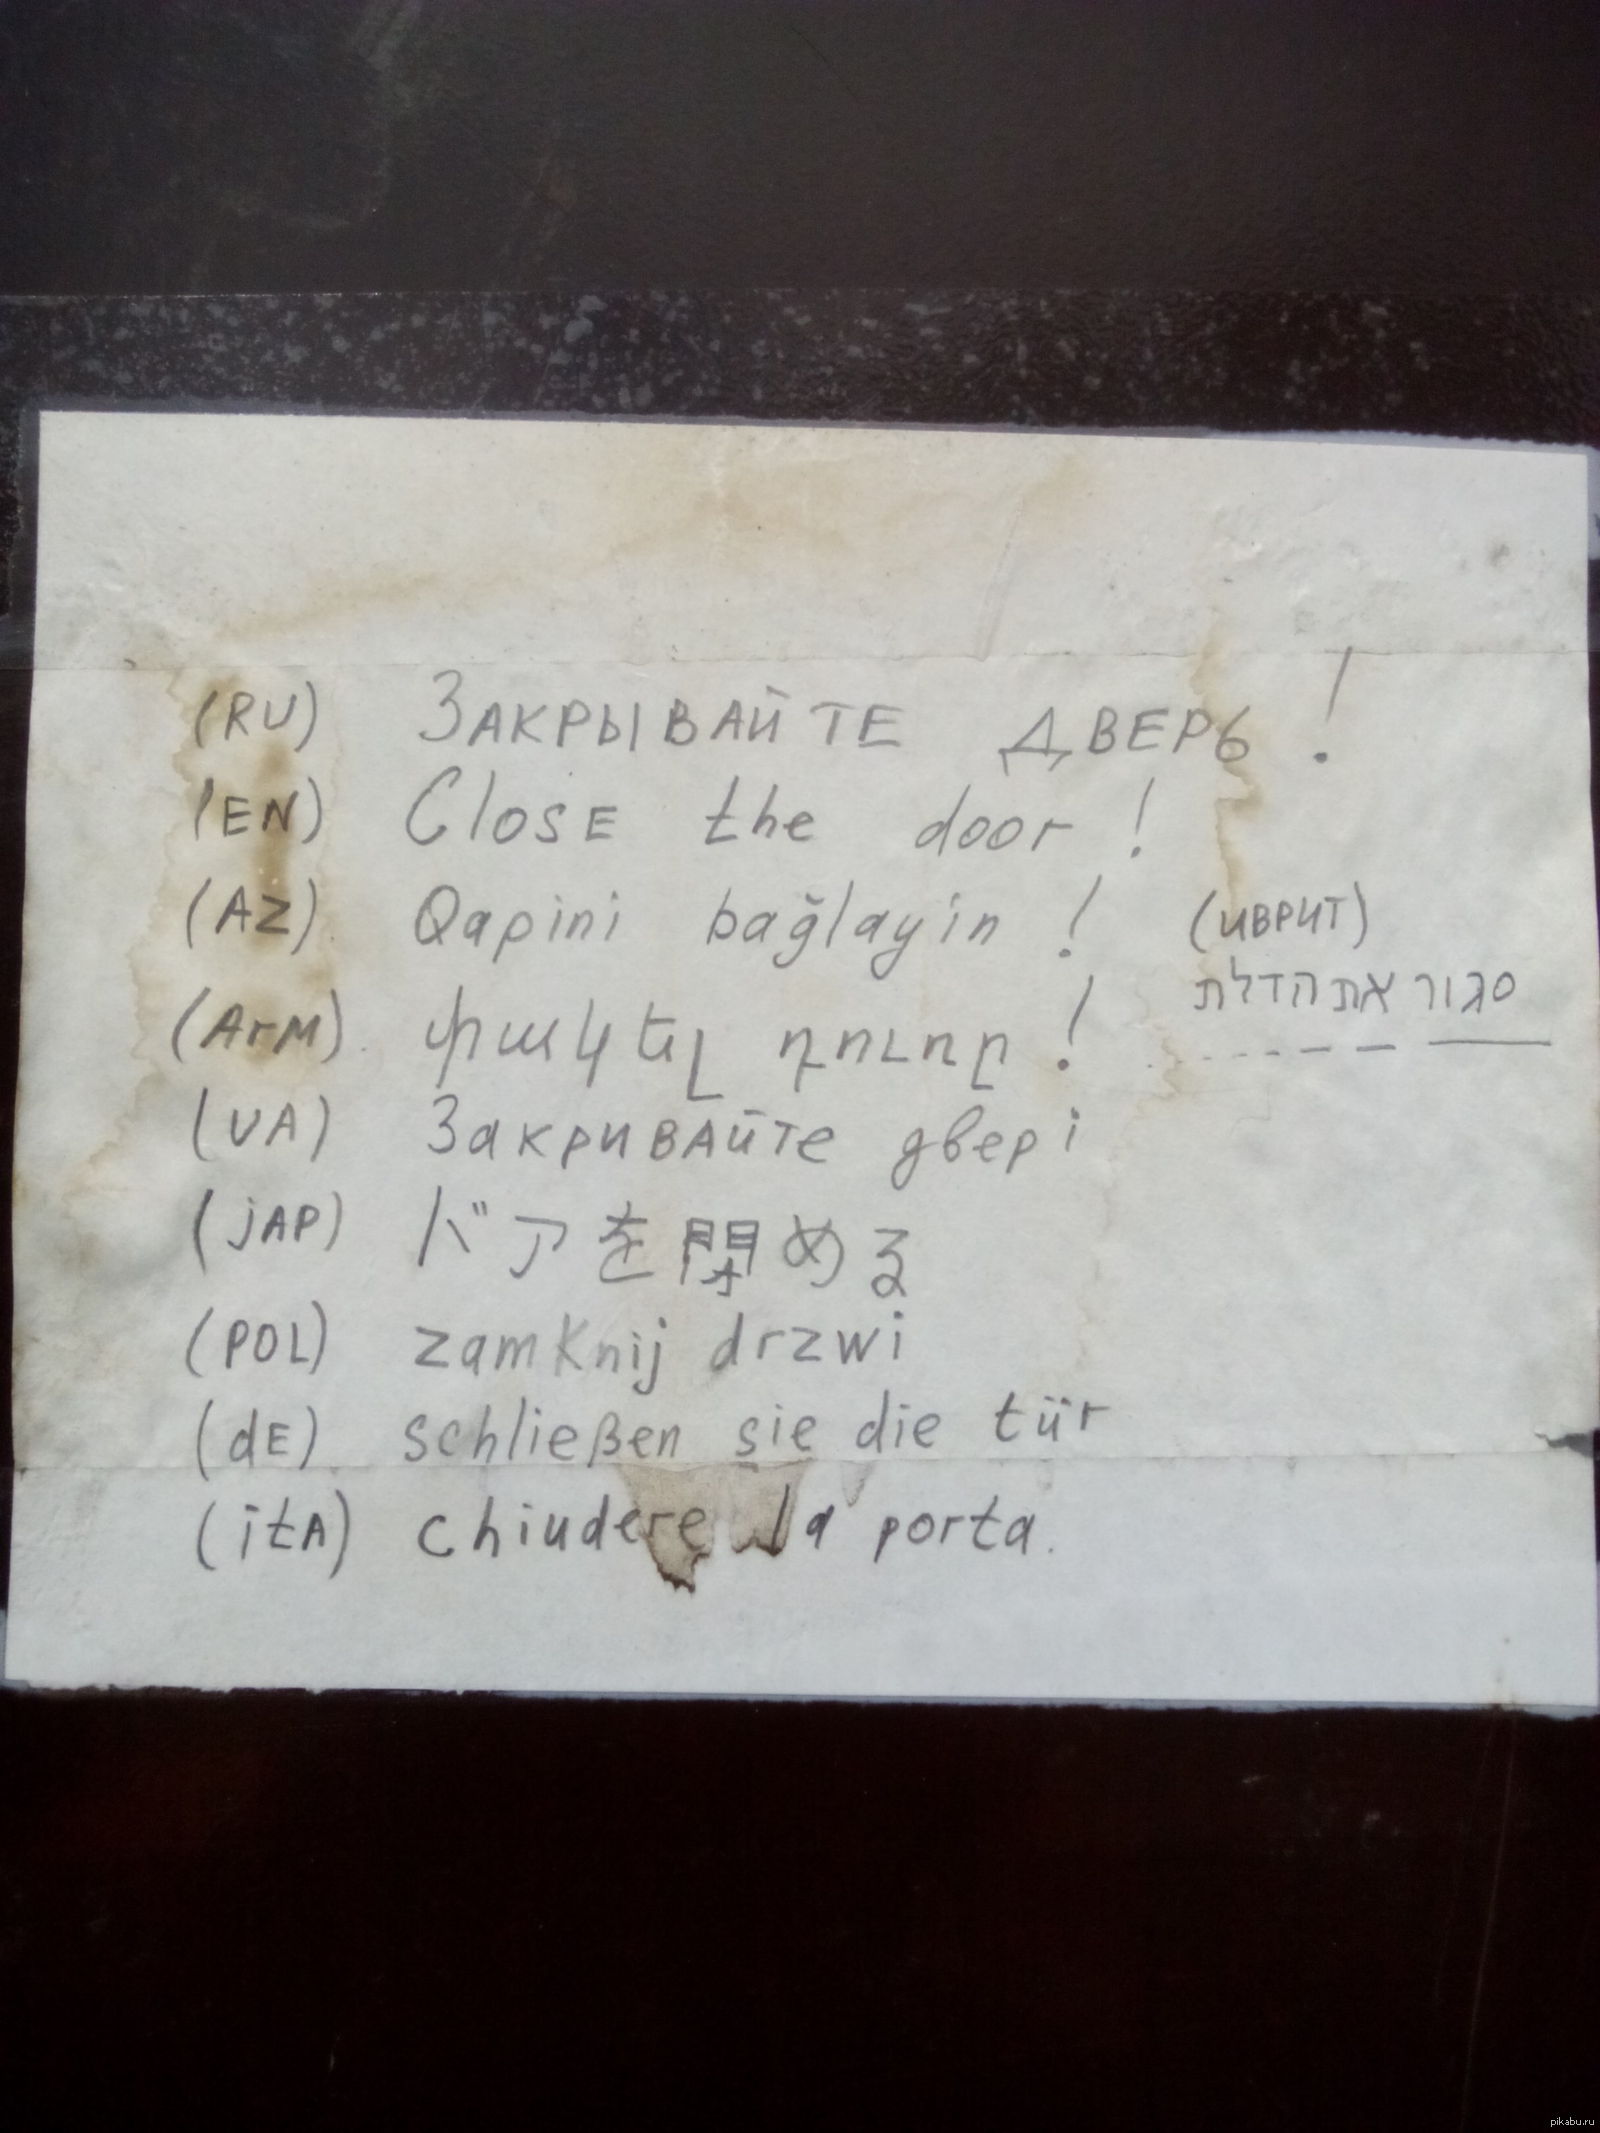 (RU) ЗАКРЫВАЙТЕ ДВЕРЬ!
(EN) ClosE the door!
(AZ) Qapini bağlayin!
(иврит)
סגור את הדלת
(ArM) փակել դուռը!
(UA) Закривайте двері
(jAP) ドアを閉める
(POL) zamknij drzwi
(dE) schließen sie die tür
(itA) chiudere la porta.
pikabu.ru